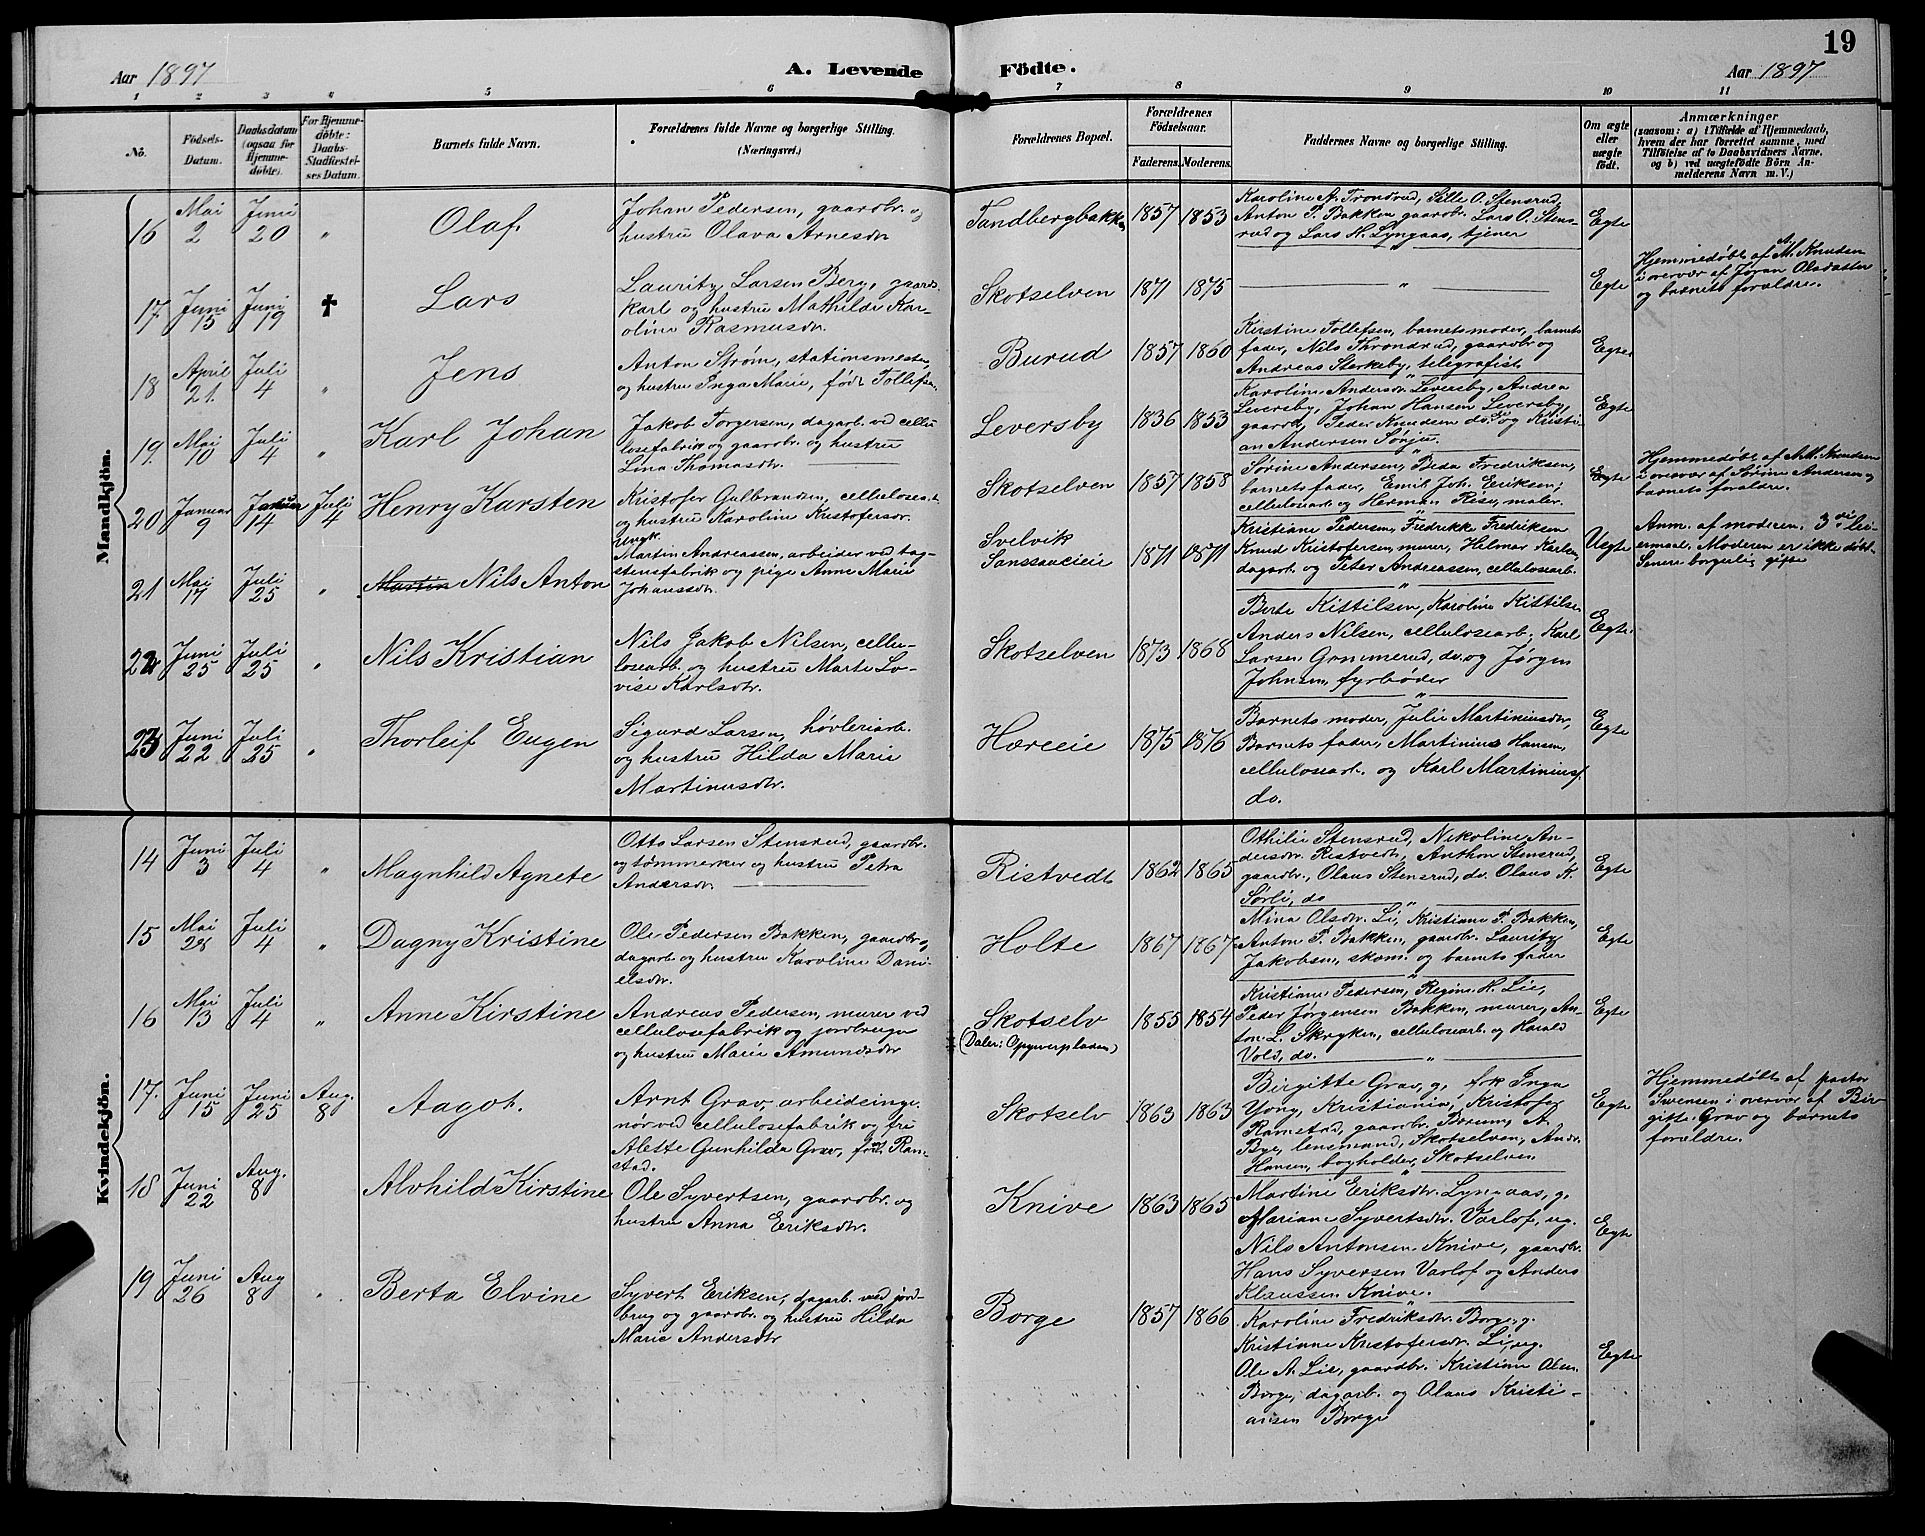 19
Aar 1897
A. Levende Födte.
Aar 1897
1 2 3 4 5 6 7 8 9 10 11
No.
Födsels-Datum.
Daabsdatum (ogsaa for Hjemmedöbte).
For Hjemmedöbte: Daabs-Stadfæstelses Datum.
Barnets fulde Navn.
Forældrenes fulde Navne og borgerlige Stilling.
(Næringsvei.)
Forældrenes Bopæl.
Forældrenes Födselsaar.
Faderens. Moderens.
Faddernes Navne og borgerlige Stilling.
Om ægte eller uægte født.
Anmærkninger
(saasom: a) i Tilfælde af Hjemmedaab, hvem der har forrettet samme, med Tilföielse af to Daabsvidners Navne, og b) ved uægtefödte Börn Anmelderens Navn m. V.)
Mandkjön.
16 Mai 2 Juni 20 " Olaf
Johan Pedersen, gaardbr. og
hustru Olava Arnesdtr
Tandbergbakken 1857 1853
Karoline A. Trondrud, Sille O. Stensrud,
Anton P. Bakken gaardbr. Lars O. Stens-
rud og Lars H. Lyngaas, tjener
Egte
17 Juni 15 Juni 19 † Lars
Lauritz Larsen Berg, gaards-
karl og hustru Mathilde Kar-
oline Rasmusdtr.
Skotselven 1871 1875
"
Egte
Hjemmedøbt af A. M. Knudsen
i overvær af Jøran Olsdatter
og barnets forældre.
18 April 21. Juli 4 " Jens
Anton Strøm, stationsmester,
og hustru Inga Marie, født Tollefsen.
Burud 1857 1860
Kirstine Tollefsen, barnets moder, barnets
fader, Nils Throndrud, gaardbr og
Andreas Sterkeby, telegrafist
Egte
19. Mai 10 Juli 4 " Karl Johan
Jakob Torgersen, dagarb. ved cellu
losefabrik og gaardbr. og hustru
Lina Thomasdtr.
Leversby 1836 1853
Karoline Andersdr. Leversby, Andrea
Leversby, Johan Hansen Leversby,
gaardb, Peder Knudsen do. og Kristi-
an Andersen Sønju.
Egte
20 Januar 9 Januar 14 Juli 4 Henry Karsten
Kristofer Gulbrandsen, cellulosearb.
og hustru Karoline Kristofersdr.
Skotselven 1857 1858
Sørine Andersen, Beda Fredriksen,
barnets fader, Emil Joh. Eriksen,
cellulosearb. og Herman Riser, maler.
Egte
Hjemmedøbt af A.M. Knudsen
i overvær af Sørine Andersen og
barnets forældre.
21 Mai 17 Juli 25 " Martin Nils Anton
ungk.
Martin Andreassen, arbeider ved tag-
stensfabrik og pige Anne Marie
Johansdtr.
Svelvik
Sanssouceie 1871 1871
Kristiane Pedersen, Fredrikke Fredriksen
Knud Kristofersen, murer, Helmar Karlsen,
dagarb. og Peter Andreassen, cellulosearb.
Uegte
Anm. af moderen. 3die lei-
ermaal. Moderen er ikke døbt.
Senere borgerlig gifte
22 Juni 25 Juli 25 " Nils Kristian
Nils Jakob Nilsen, cellu-
losearb. og hustru Marte Lo-
vise Karlsdtr.
Skotselven 1873 1868
Berte Kittilsen, Karoline Kittilsen
Anders Nilsen, cellulosearb., Karl
Larsen Grimmerud, do. og Jørgen
Johnsen, fyrbøder
Egte.
23 Juni 22 Juli 25 " Thorleif Eugen
Sigurd Larsen, høvleriarb.
og hustru Hilda Marie
Martinusdtr.
Høreeie 1875 1876
Barnets moder, Julie Martiniusdtr,
Barnets fader, Martinius Hansen,
cellulosearb. og Karl Martiniusf.
do.
Egte
Kvindekjön.
14 Juni 3 Juli 4 " Magnhild Agnete
Otto Larsen Stensrud, gaardbr.
og tømmerker og hustru Petra
Andersdtr.
Ristvedt 1862 1865
Othilie Stensrud, Nikoline An-
dersdtr. Ristvedt, Anthon Stensrud,
gaardbr., Olaus Stensrud, do. Olaus K.
Sørli, do
Egte
15 Mai 28 Juli 4 " Dagny Kristine
Ole Pedersen Bakken, gaardbr,
dagarb. og hustru Karoline Dani-
elsdtr.
Holte 1867 1867
Mina Olsdtr. Li, Kristiane P. Bakken,
Anton P. Bakken, gaardbr. Lauritz
Jakobsen, skom. og barnets fader
Egte
16 Mai 13 Juli 4 " Anne Kirstine
Andreas Pedersen, murer ved
cellulosefabrik og jordbruger
og hustru Marie Amundsdtr
Skotselv 1855 1854
Kristiane Pedersen, Regine H. Lie,
Peder Jørgensen Bakken, murer, An-
ton L. Skrykken, cellulosearb. og Harald
Vold, do.
Egte
17. Juni 15 Juni 25 Aug. 8 Aagot.
Arnt Grav, arbeidsinge-
niør ved cellulosefabrik og fru
Alette Gunhilda Grav, født Ram-
stad.
Skotselv 1863 1863
Birgitte Grav, g, frk Inga
Yong, Kristiania, Kristofer
Ramstad, gaardbr. Bærum, A.
Bye, lensmand, Skotselven, Andr.
Hansen, bogholder, Skotselven
Egte
Hjemmedøbt af pastor
Svensen i overvær af Bir
gitte Grav og barnets
forældre.
18 Juni 22 Aug. 8 Alvhild Kirstine
Ole Syvertsen, gaardbr. og
hustru Anna Eriksdtr.
Knive 1863 1865
Martine Eriksdtr. Lyngaas, g,
Mariane Syvertsdtr. Varlof, ug.
Nils Antonsen Knive, gaardbr.
Hans Syversen Varlof og Anders
Klaussen Knive.
Egte
19 Juni 26 Aug 8 " Berta Elvine
Syvert Eriksen, dagarb. ved jord-
brug og gaardbr. og hustru Hilda
Marie Andersdtr
Borge 1857 1866
Karoline Fredriksdtr. Borge, g.
Kristiane Kristofersdr. Lie, ug.
Ole A. Lie, gaardbr. Kristian Olsen
Borge, dagarb. og Olaus Kristi-
ansen Borge
Egte